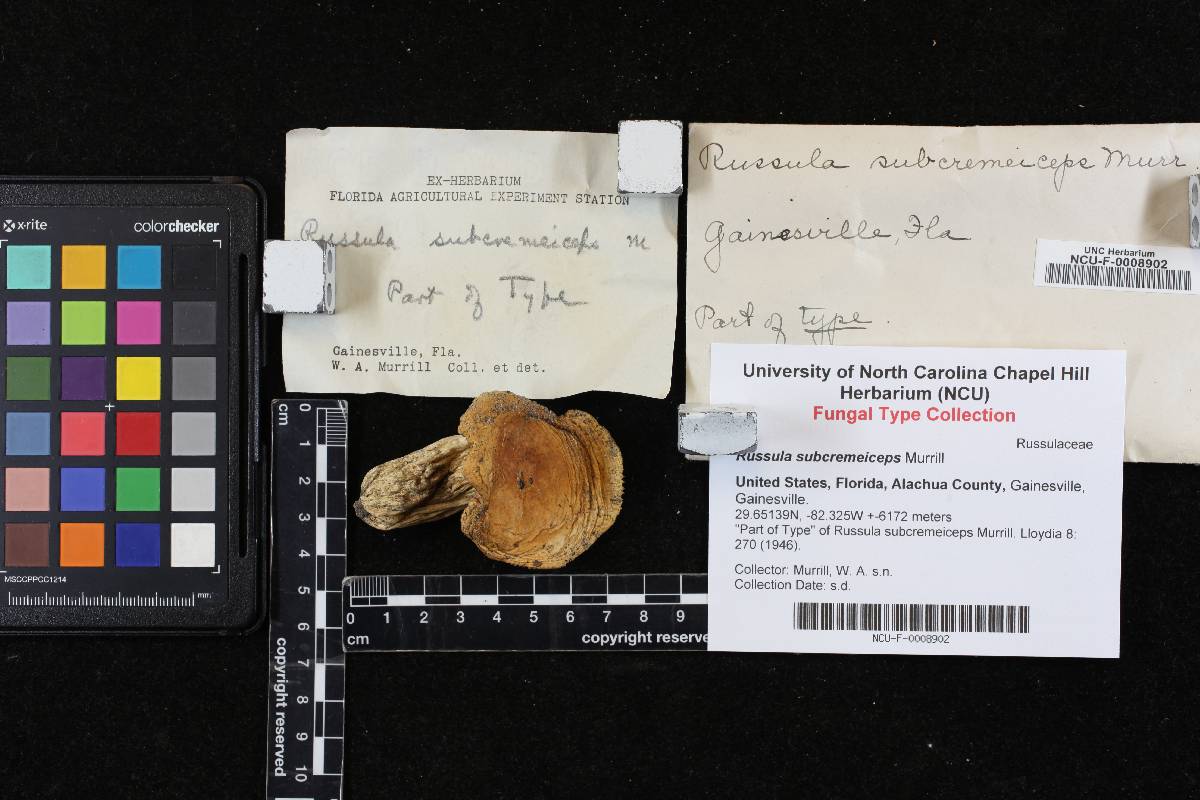 x-rite
colorchecker
MSCCPPCC1214
mm
EX-HERBARIUM
FLORIDA AGRICULTURAL EXPERIMENT STATION
Russula subcremeiceps M
Part of Type
Gainesville, Fla.
W. A. Murrill Coll. et det.
Russula subcremeiceps Murr
Gainesville, Fla
Part of type.
UNC Herbarium
NCU-F-0008902
University of North Carolina Chapel Hill
Herbarium (NCU)
Fungal Type Collection
Russulaceae
Russula subcremeiceps Murrill
United States, Florida, Alachua County, Gainesville,
Gainesville.
29.65139N, -82.325W +-6172 meters
"Part of Type" of Russula subcremeiceps Murrill. Lloydia 8:
270 (1946).
Collector: Murrill, W. A. s.n.
Collection Date: s.d.
NCU-F-0008902
cm
0
1
2
3
4
5
6
7
8
9
10
copyright reserved
0 1 2 3 4 5 6 7 8 9
cm
copyright reserve